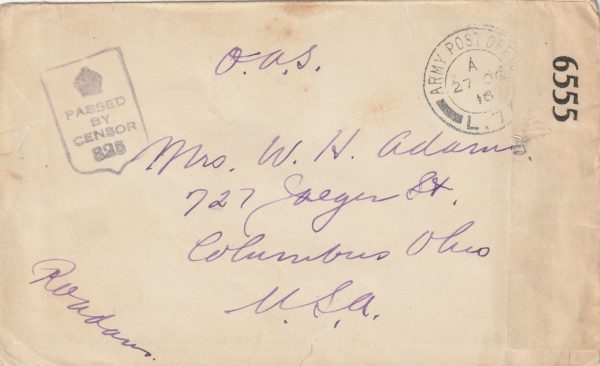 O.A.S.
ARMY POST OFFICE
A
27 OC
18
L.7
6555
PASSED
BY
CENSOR
825
Mrs. W. H. Adams
727 Jaeger St.
Columbus Ohio
U.S.A.